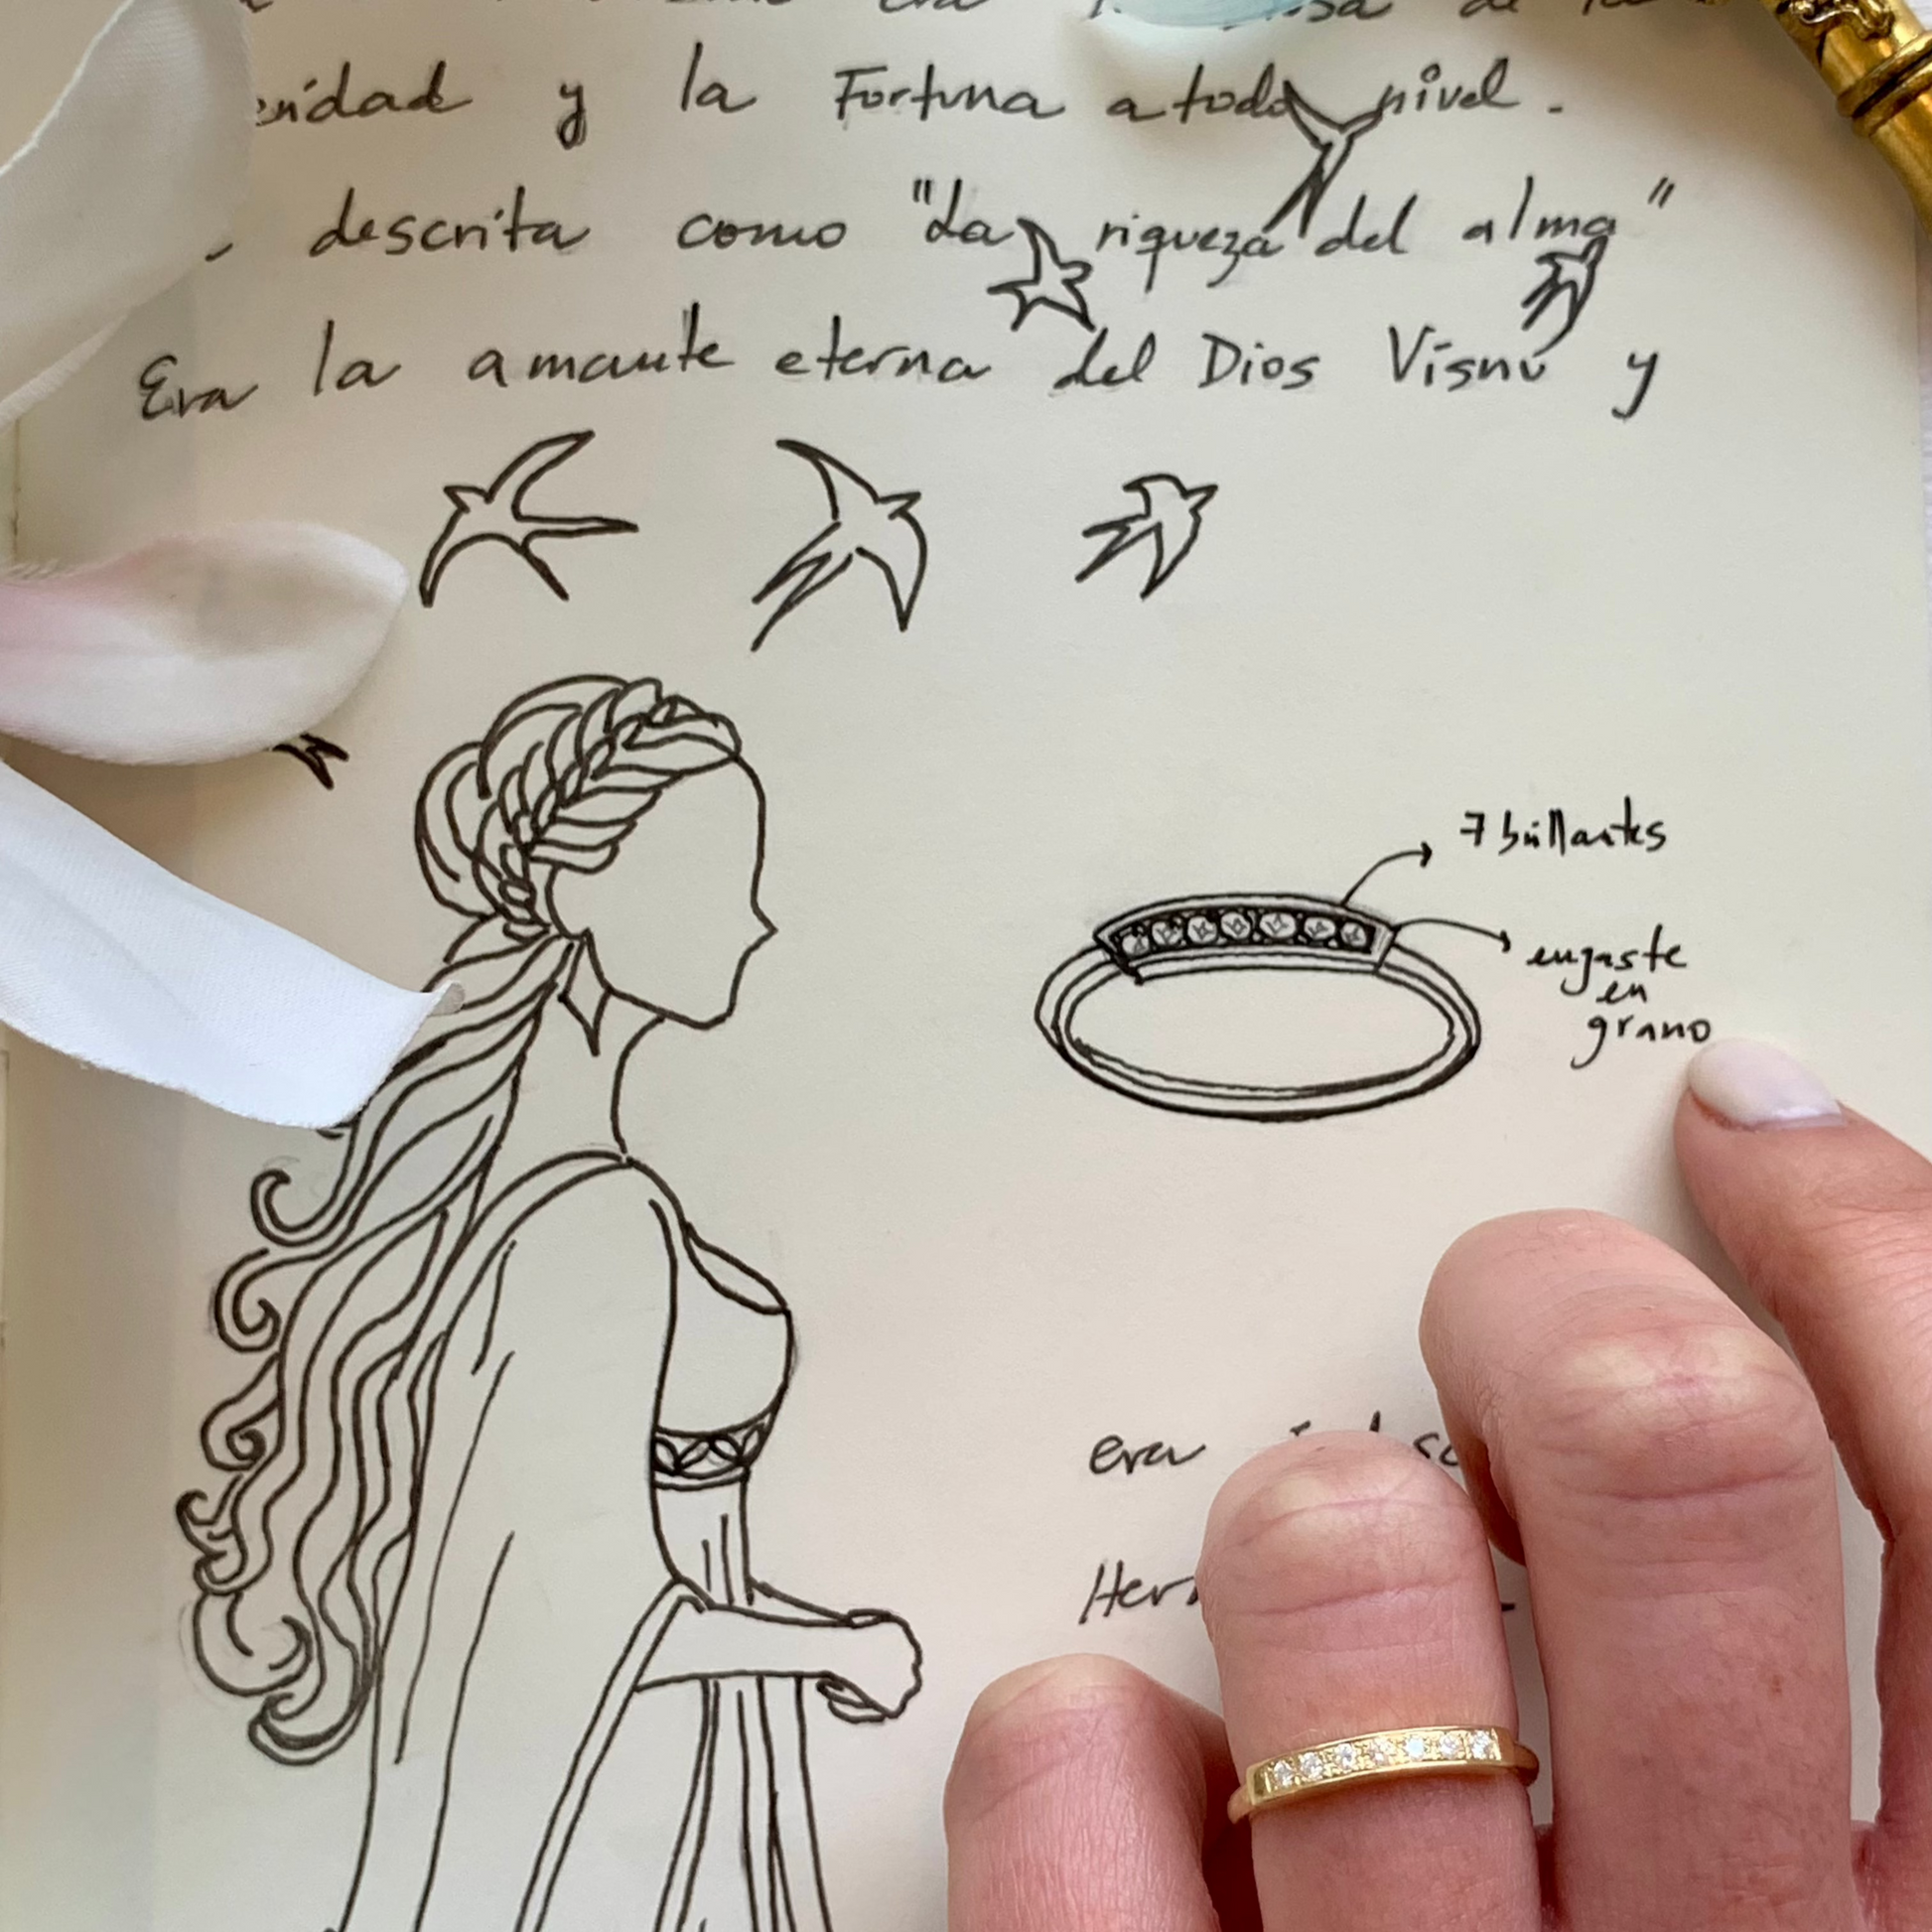 era de la
y la Fortuna a todo nivel.
descrita como "La riqueza del alma"
Era la amante eterna del Dios Visnú y
7 brillantes
engaste
en
grano
era